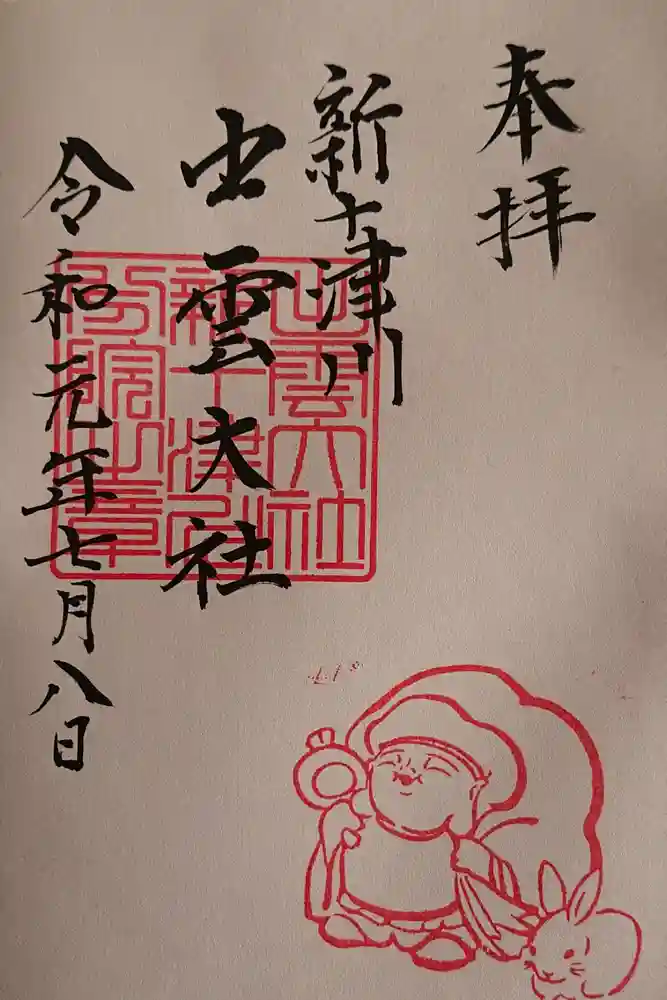 奉拝
新十津川
出雲大社
令和元年七月八日
出雲大社
新十津川
分院之章